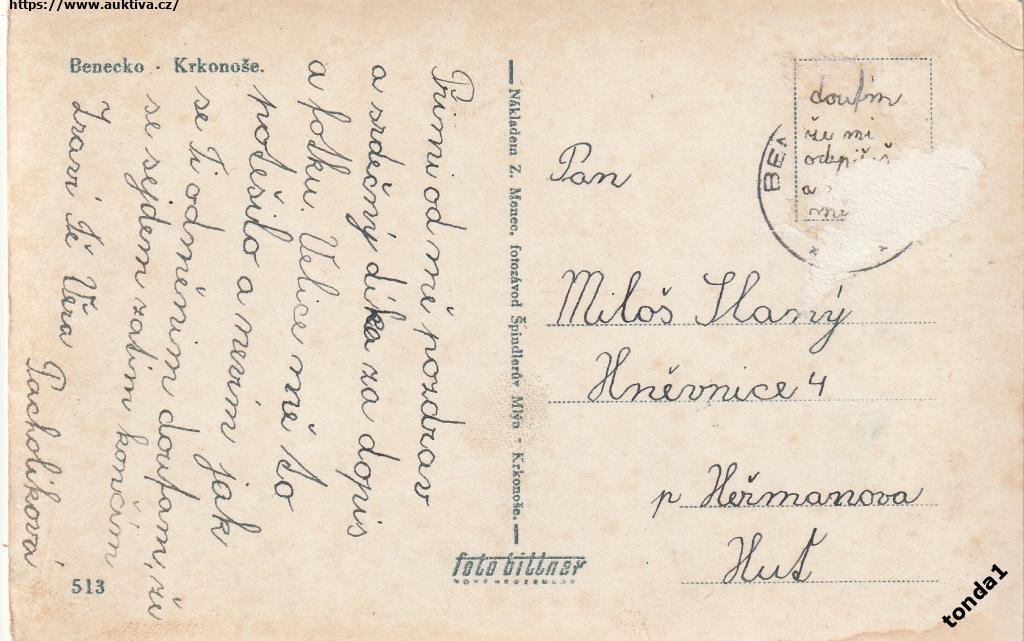 https://www.auktiva.cz/
Benecko · Krkonoše.
Přimi od mě pozdrav
a srdečný díka za dopis
a fotku. Velice mě to
potěšilo a nevím jak
se Ti odměním doufam, že
se sejdem zatím končám
Zraví Tě Věra
Pacholíková
513
Nákladem Z. Menec, fotozávod Špindlerův Mlýn - Krkonoše.
foto bittner
doufim
že mi
odepíšeš
a
mi
BEN
Pan
Miloš Slaný
Hněvnice 4
p Heřmanova
Huť
tonda1